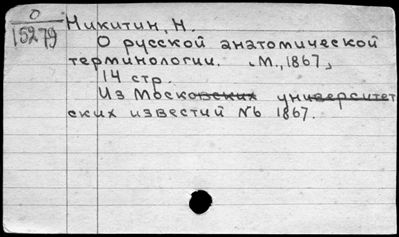 О
15279
Никитин, Н.
О русской анатомической
терминологии. [М., 1867]
14 стр.
Из Московских университет
ских известий №6 1867.